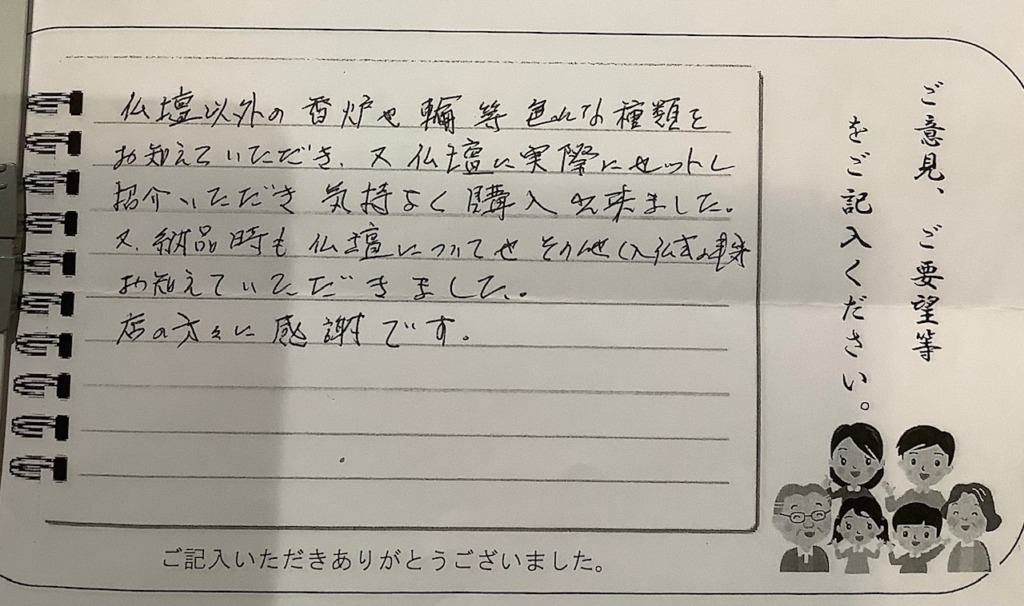 ご意見、ご要望等
をご記入ください。
仏壇以外の香炉や輪等色んな種類を
お知えていただき、又仏壇に実際にセットし
紹介いただき気持よく購入出来ました。
又、納品時も仏壇についてやその他
お知えていただきました。
店の方々に感謝です。
ご記入いただきありがとうございました。